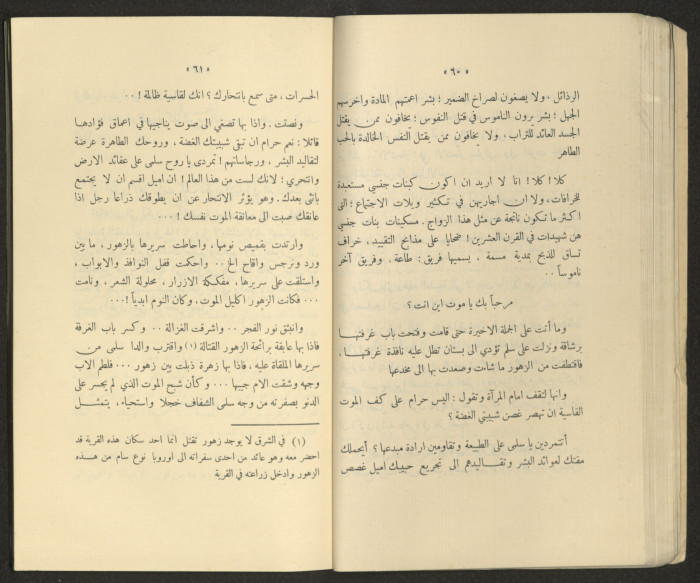 « ٦٠ »
الرذائل ، ولا يصغون لصراخ الضمير ؛ بشر اعمتهم المادة واخرسهم
الجهل ؛ بشر يرون الناموس في قتل النفوس ؛ يخافون ممن يقتل
الجسد العائد للتراب ، ولا يخافون ممن يقتل النفس الخالدة بالحب
الطاهر
كلا ! كلا ! انا لا اريد ان اكون كبنات جنسي مستعبدة
للخرافات ، ولا ان اجاريهن في تكثير ويلات الاجتماع ؛ التي
اكثر ما تكون ناتجة عن مثل هذا الزواج . مسكينات بنات جنسي
هن شهيدات في القرن العشرين ! ضحايا على مذابح التقييد ، خراف
تساق للذبح بمدية مسمة ، يسميها فريق : طاعة ، وفريق آخر
ناموساً ٠٠
مرحباً بك يا موت اين انت ؟
وما أتت على الجملة الاخيرة حتى قامت وفتحت باب غرفتها
برشاقة ونزلت على سلم تؤدي الى بستان تطل عليه نافذة غرفتها ،
فاقتطفت من الزهور ما شاءت وصعدت بها الى مخدعها
وانها لتقف امام المرآة وتقول : اليس حرام على كف الموت
القاسية ان تهصر غصن شبيبتي الغضة ؟
أتتمردين يا سلمى على الطبيعة وتقاومين ارادة مبدعها ؟ أيحملك
مقتك لعوائد البشر وتقاليدهم الى تجريع حبيبك اميل غصص
« ٦١ »
الحسرات ، متى سمع بانتحارك ؟ انك لقاسية ظالمة ! ٠٠
وفصتت . واذا بها تصغي الى صوت يناجيها في اعماق فؤادها
قائلا : نعم حرام ان تبقى شبيبتك الغضة ، وروحك الطاهرة عرضة
لتقاليد البشر ، ورجاساتهم ! تمردي يا روح سلمى على عقائد الارض
وانتحري ؛ لانك لست من هذا العالم ! ان اميل اقسم ان لا يجتمع
بانثى بعدك . وهو يؤثر الانتحار عن ان يطوقك ذراعا رجل اذا
عانقك صبت الى معانقة الموت نفسك ! ٠٠٠
وارتدت بقميص نومها ، واحاطت سريرها بالزهور ، ما بين
ورد ونرجس واقاح الخ ٠٠ واحكمت قفل النوافذ والابواب ،
واستلقت على سريرها ، مفككة الازرار ، محلولة الشعر ، ونامت
٠٠٠ فكانت الزهور اكليل الموت ، وكان النوم ابدياً !٠٠٠
وانبثق نور الفجر ٠٠ واشرقت الغزالة ٠٠ وكسر باب الغرفة
فاذا بها عابقة برائحة الزهور القتالة (١) واقترب والدا سلمى من
سريرها الملقاة عليه ، فاذا بها زهرة ذبلت بين زهور ٠٠٠ فلطم الاب
وجهه وشقت الام جيبها ٠٠٠ وكأن شبح الموت الذي لم يجسر على
الدنو بصفرته من وجه سلمى الشفاف خجلا واستحياء ، يتمثل
(١) في الشرق لا يوجد زهور تقتل انما احد سكان هذه القرية قد
احضر معه وهو عائد من احدى سفراته الى اوروبا نوع سام من هذه
الزهور وادخل زراعته في القرية